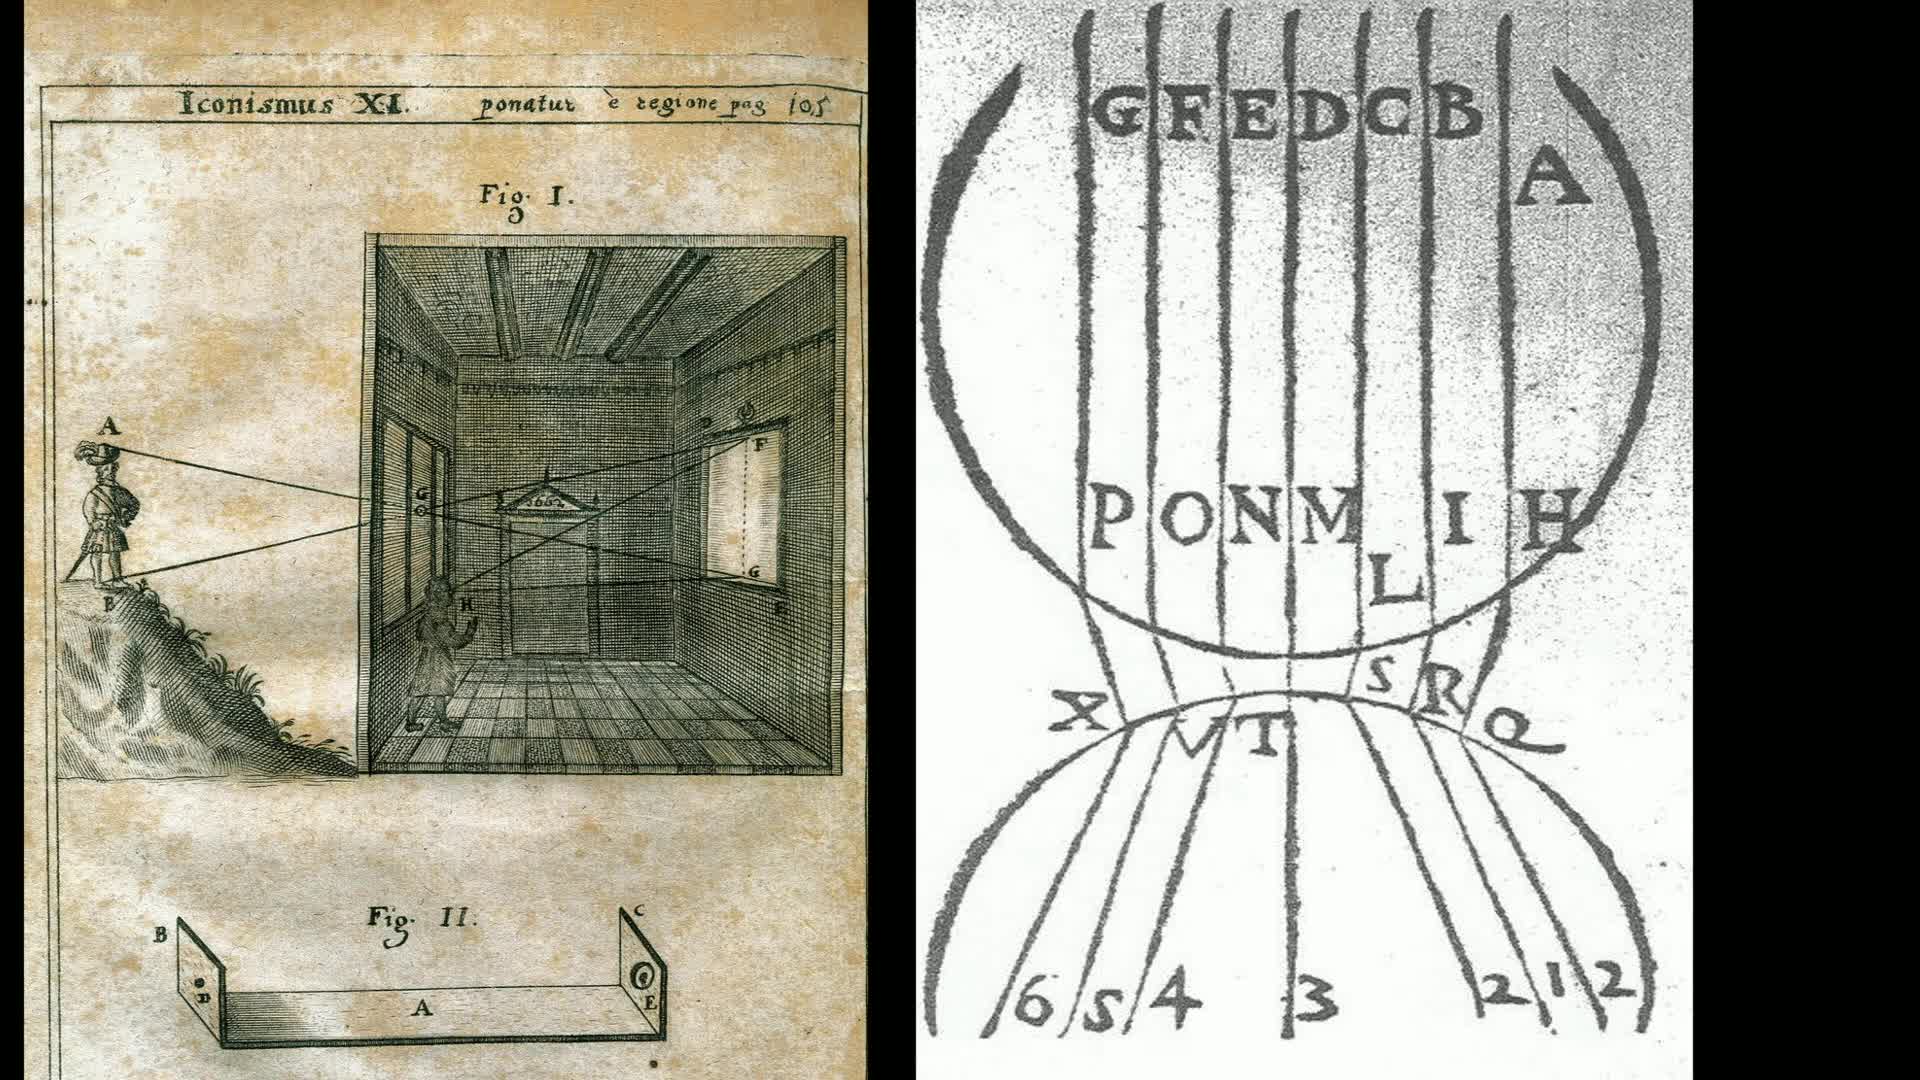 Iconismus XI. ponatur è regione pag 105
Fig. I.
A
B
G
1662
F
G
H
E
Fig. II.
B
C
D
A
E
G F E D C B
A
P O N M I H
L
S R
X V T Q
6 5 4 3 2 1 2